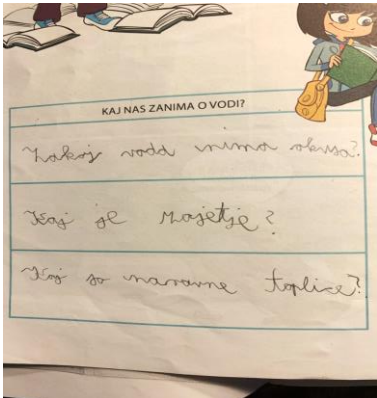 KAJ NAS ZANIMA O VODI?
Zakaj voda nima okusa?
Kaj je zajetje?
Kaj so naravne toplice?